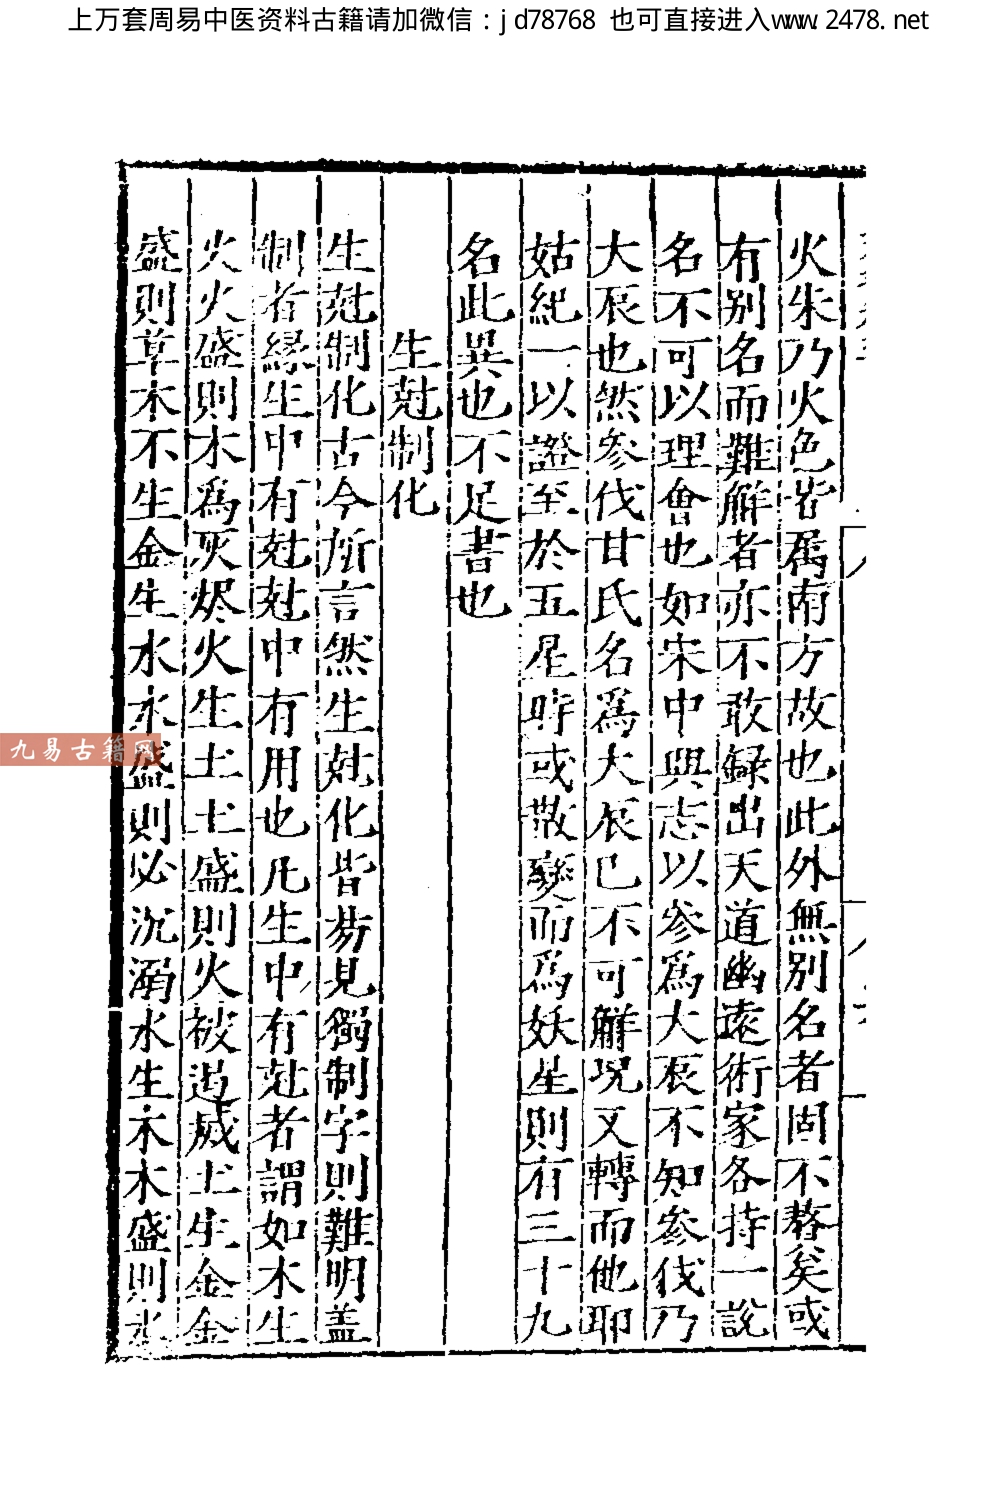 上万套周易中医资料古籍请加微信：jd78768 也可直接进入www.2478.net
火朱乃火色皆爲南方故也此外無别名者固不贅矣或
有别名而難解者亦不敢録出天道幽遠術家各持一説
名不可以理會也如宋中興志以參爲大辰不知參伐乃
大辰也然參伐甘氏名爲大辰已不可解况又轉而他耶
姑紀一以證至於五星時或散變而爲妖星則有三十九
名此異也不足書也
生尅制化
生尅制化古今所言然生尅化皆昜見獨制字則難明盖
制者緣生中有尅尅中有用也凡生中有尅者謂如木生
火火盛則木爲灰烬火生土土盛則火被遏滅土生金金
盛則草木不生金生水水盛則必沉溺水生木木盛則水
九易古籍网